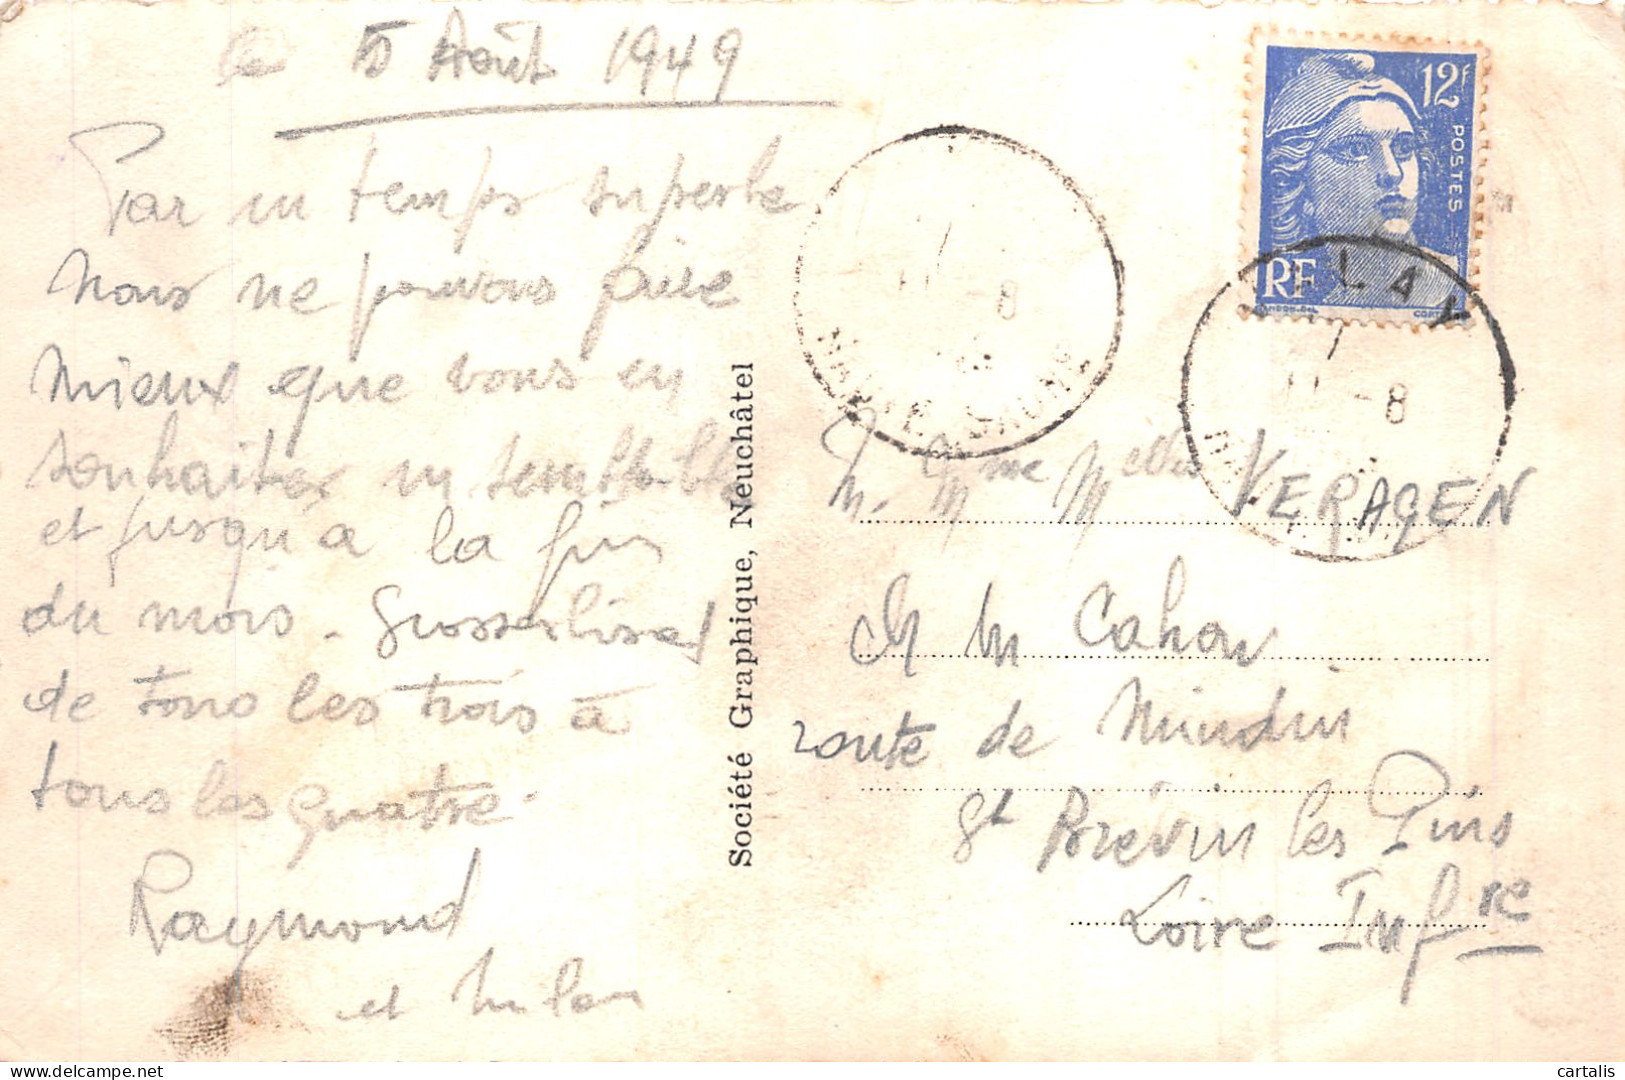 le 5 Août 1949
Par un temps superbe
nous ne pouvons faire
mieux que vous en
souhaiter un semblable
et jusqu'à la fin
du mois. Grosses bises
de tous les trois à
tous les quatre.
Raymond
et
Société Graphique, Neuchâtel
12f
POSTES
RF
CORTOT
-8
HAUTE-SAONE
LAY
-8
M. Mme Melles VERAGEN
Cahou
route de Mindin
St Brévin les Pins
Loire Infre
cartalis delcampe.net